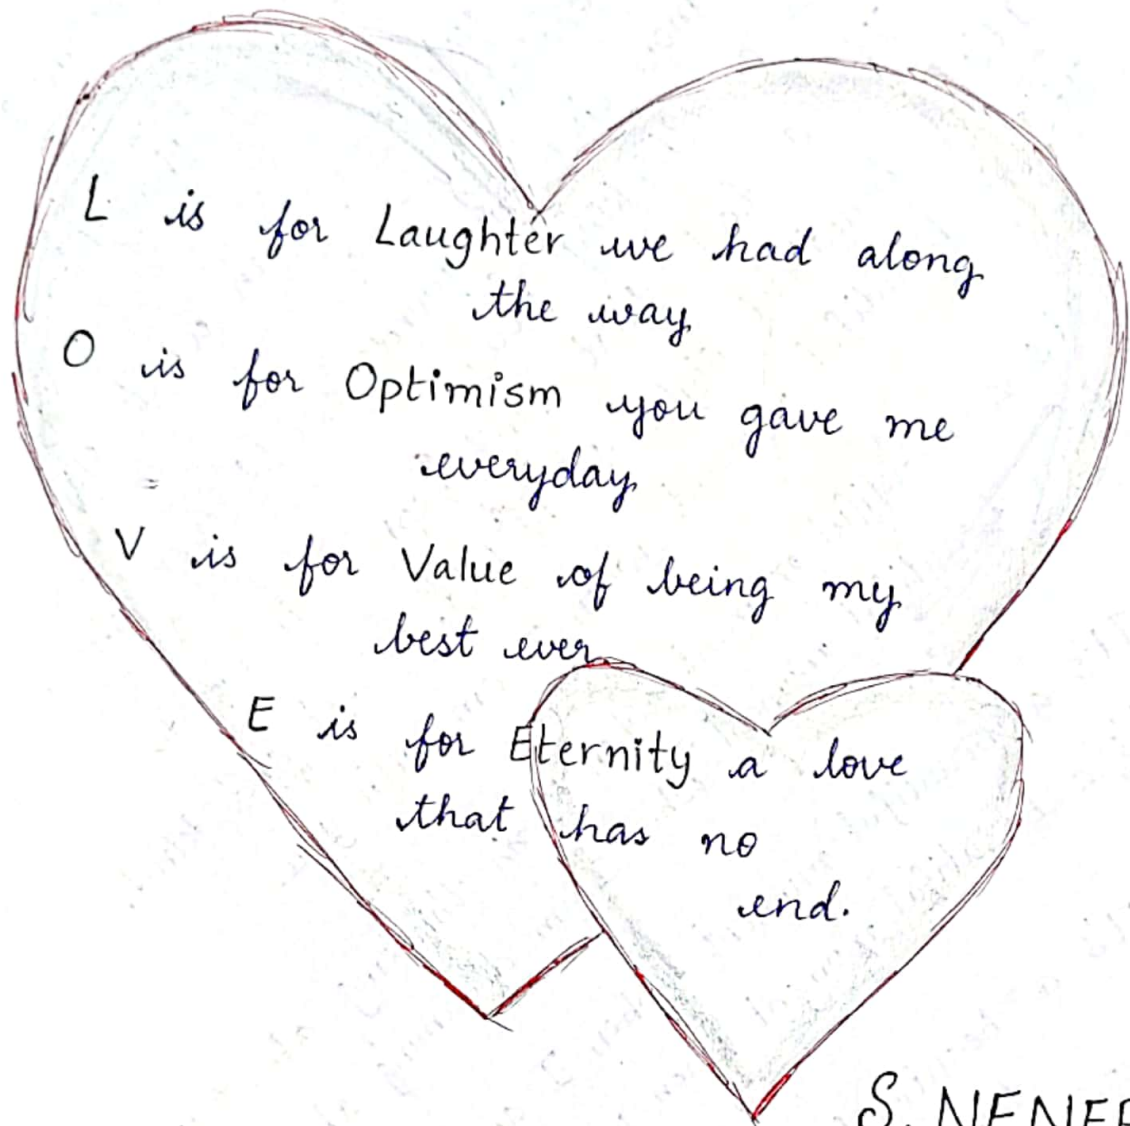 L is for Laughter we had along
the way
O is for Optimism you gave me
everyday
V is for Value of being my
best ever
E is for Eternity a love
that has no
end.
S.